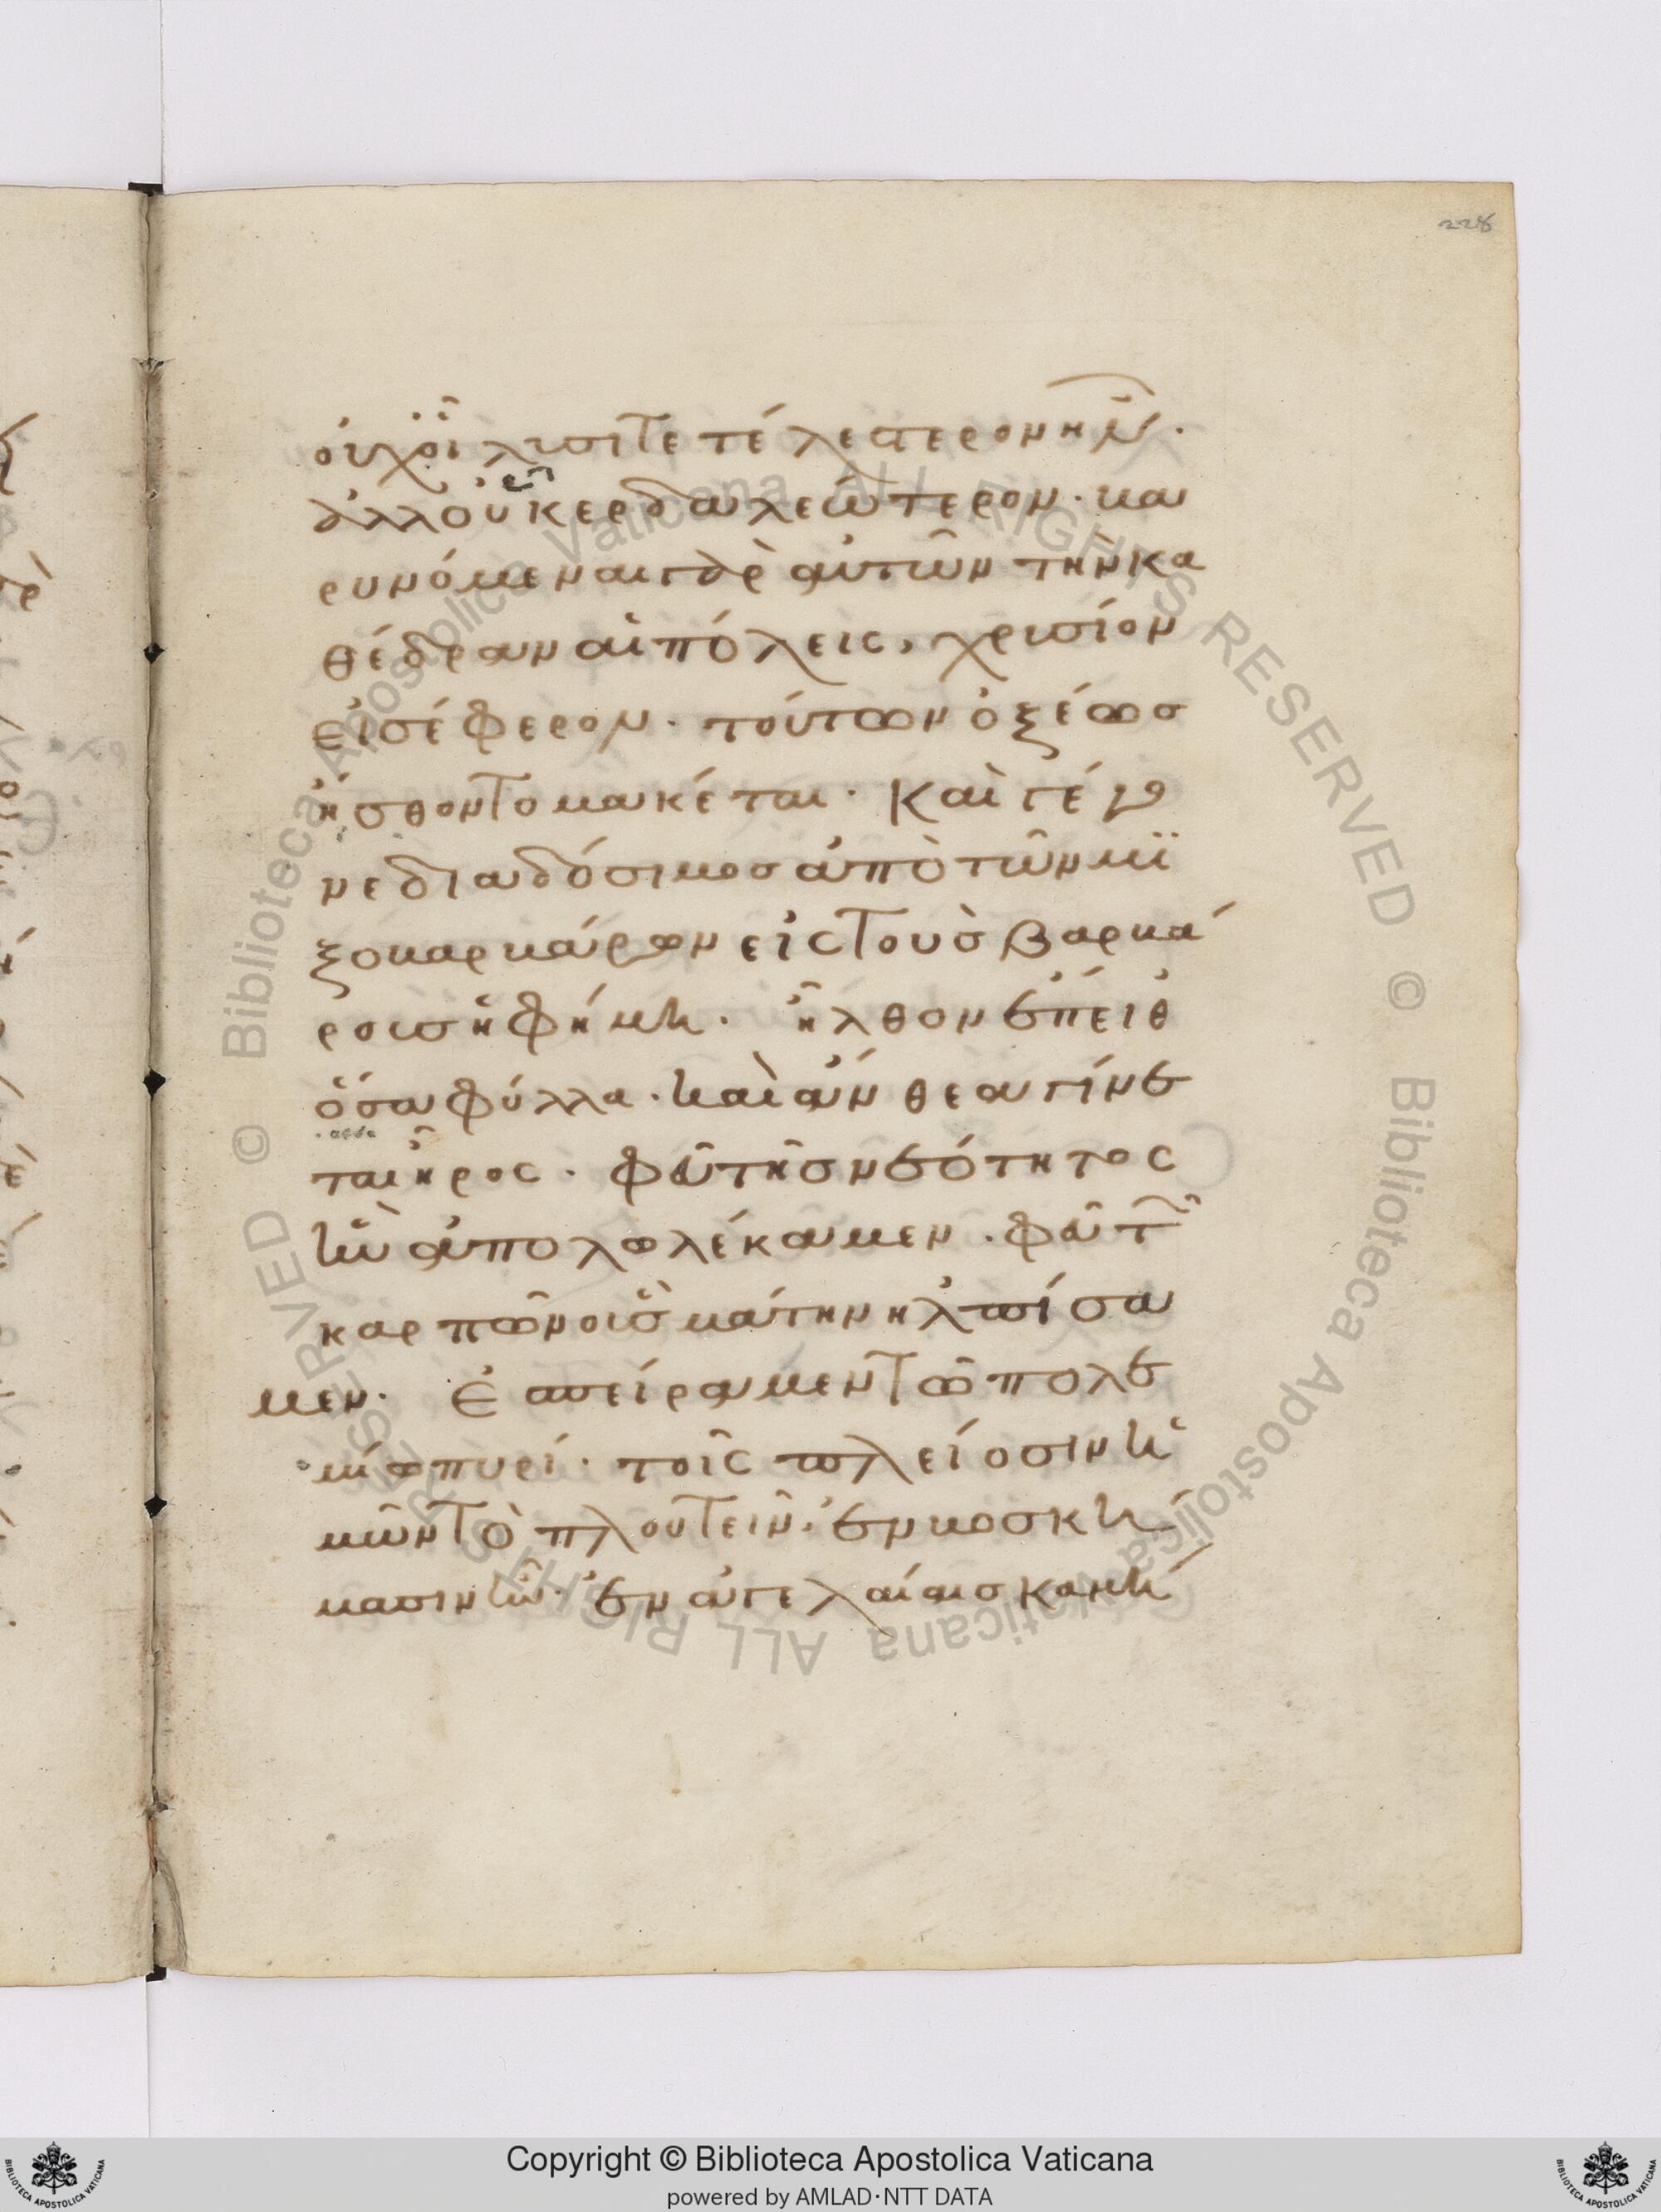 οὐχ οἷ λυσιτετέλεστερον ἦν.
ἀλλ οὗ κερδαλεώτερον· βα
ρυνόμεναι γὰρ αὐτῶν τὴν κα
θέδραν αἱ πόλεις, χρυσίον
εἰσέφερον· τούτων ὀξέωσ
ἤσθοντο μακέται· Καὶ γέγο
νε διαδόσιμοσ ἀπὸ τῶν μϊ
ξοβαρβάρων εἰς τοὺσ βαρβά
ρουσ ἡ φήμη· ἦλθον ἔπειθ
ὅσα φύλλα· καὶ ἄνθεα γίνε
ται ἦρος· φεῦ τῆσ νεότητος
ἣν ἀπολωλέκαμεν· φεῦ τῶν
καρπῶν οἷσ μάτην ἠλπίσα
μεν· Ἐσπείραμεν τῶ πολε
μίω πυρί· τοῖς πλείοσιν ἡ
μῶν τὸ πλουτεῖν· ἐν βοσκή
μασιν ἦν· ἐν ἀγελαίαισ καμή
228
Copyright © Biblioteca Apostolica Vaticana
powered by AMLAD·NTT DATA